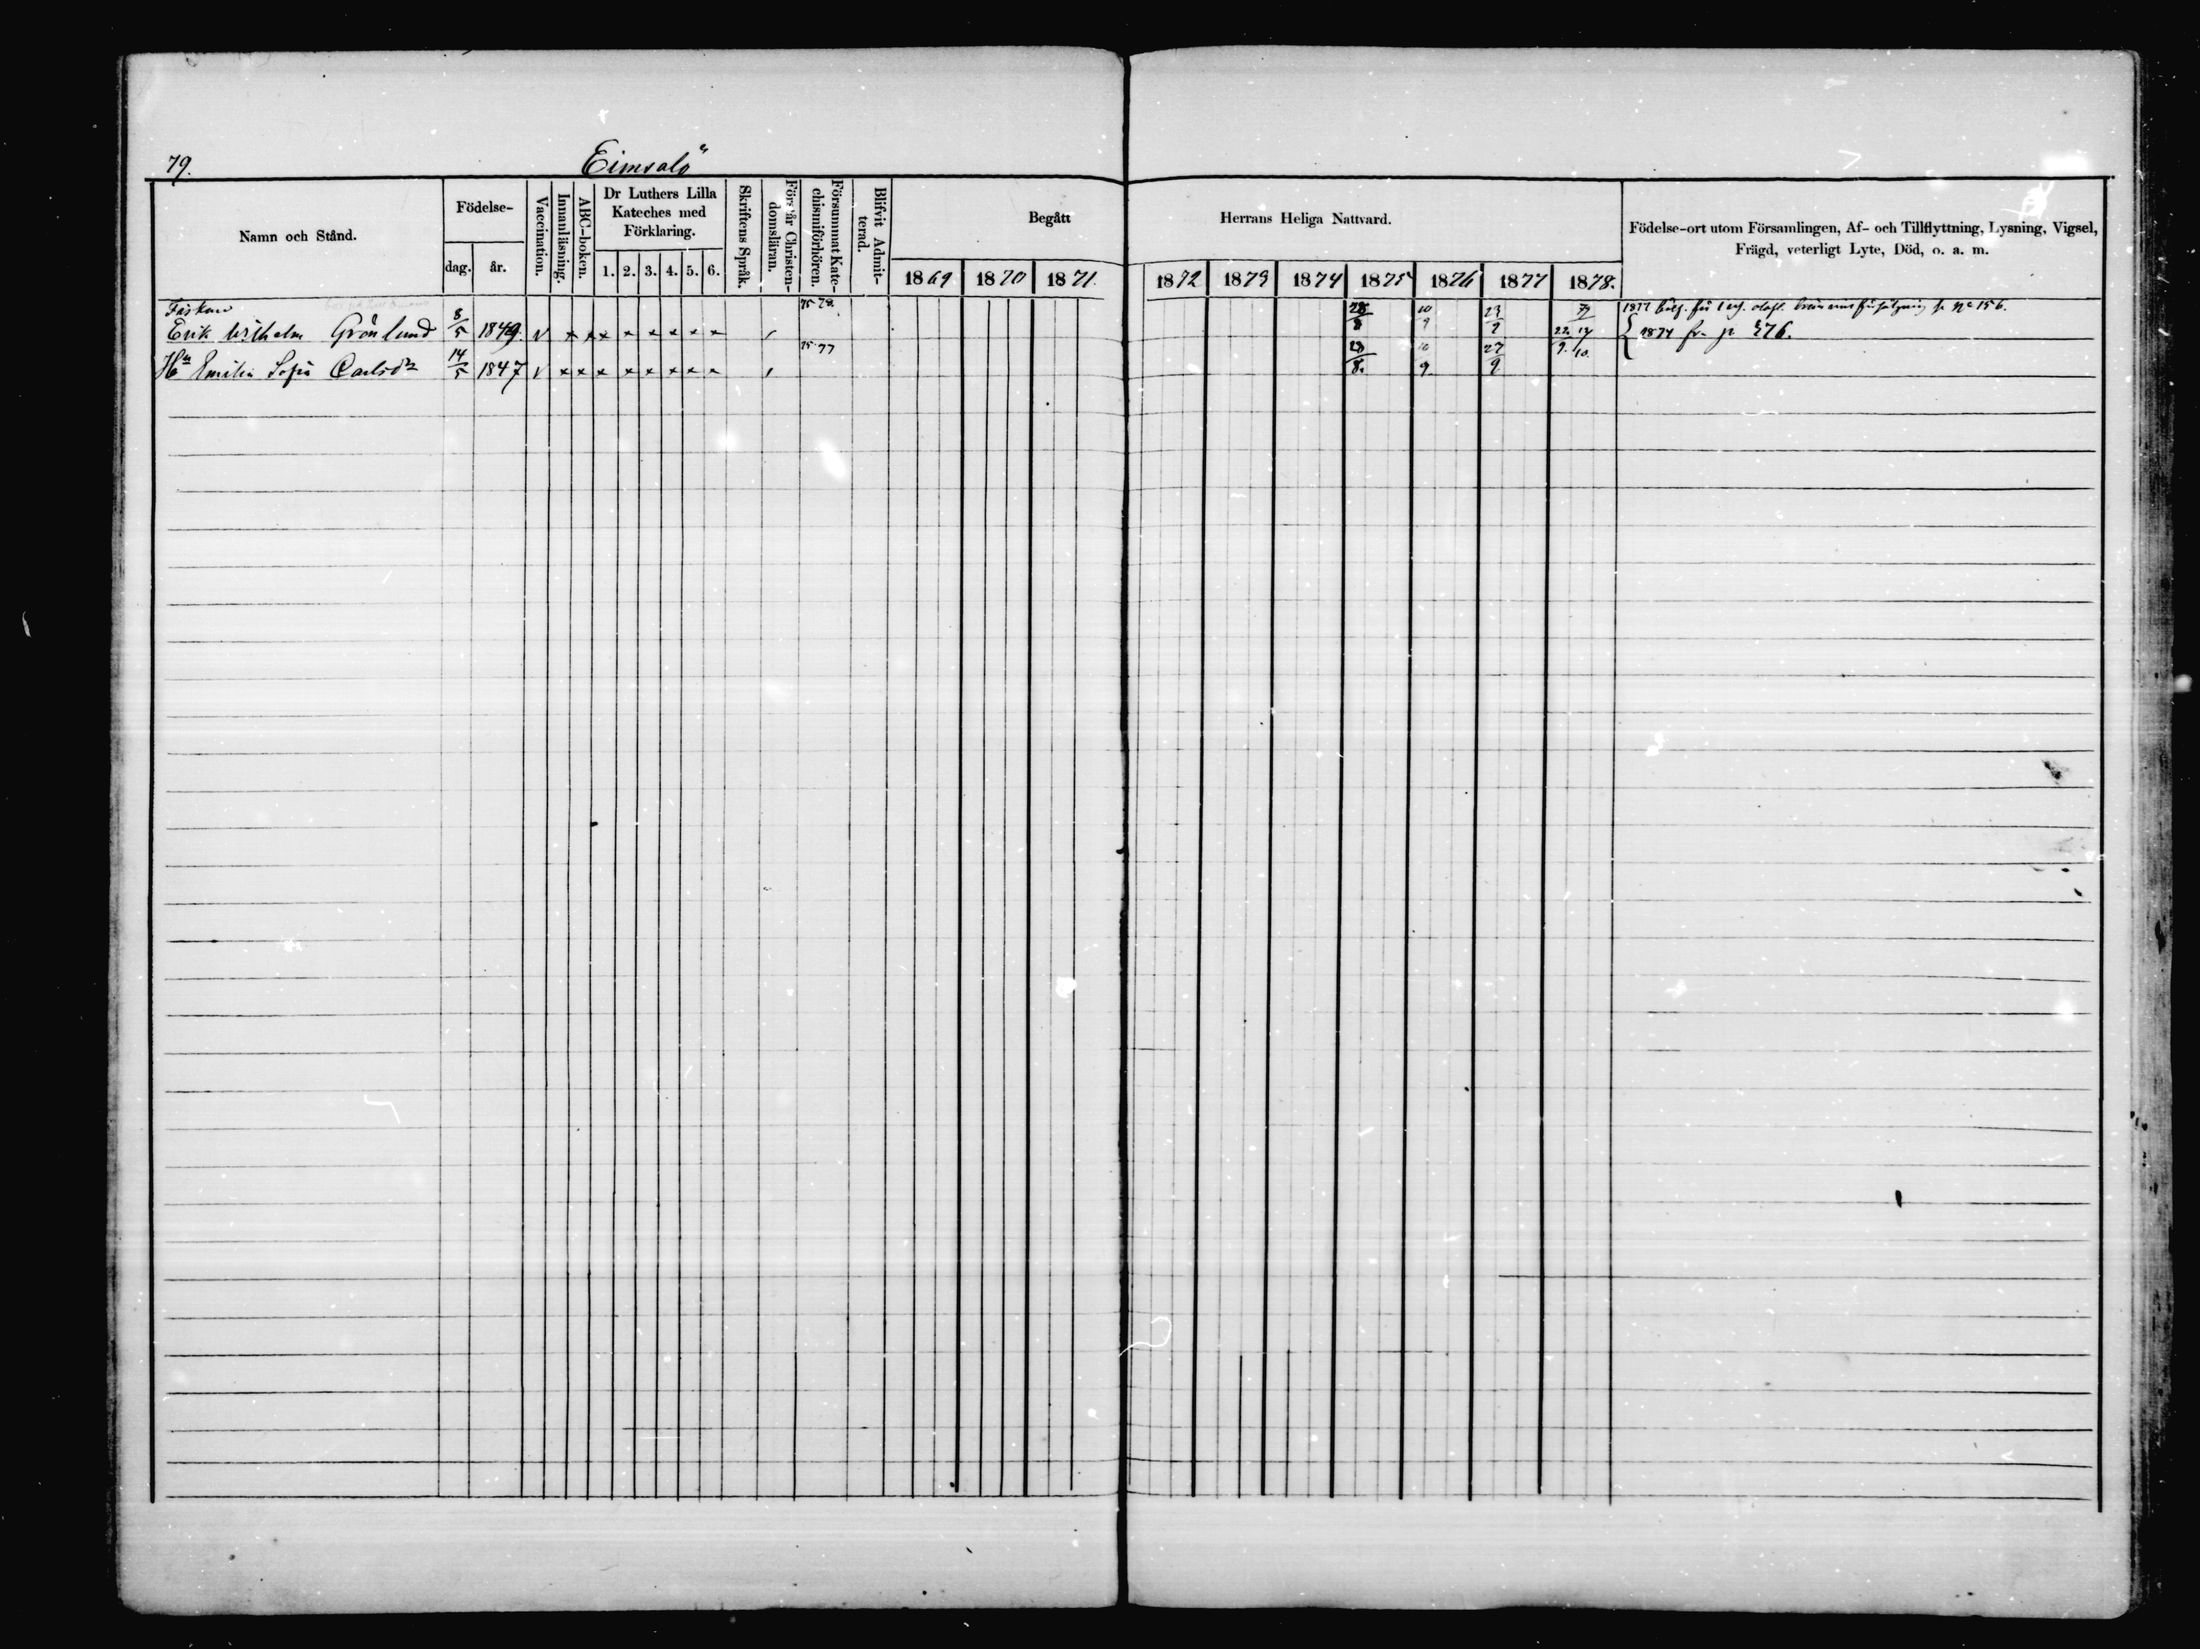 79.
Eimsalö
Namn och Stånd.
Födelse-
dag.
år.
Vaccination.
Innanläsning.
ABC-boken.
Dr Luthers Lilla
Kateches med
Förklaring.
1. 2. 3. 4. 5. 6.
Skriftens Språk.
Förstår Christen-
domsläran.
Försummat Kate-
chismiförhören.
Blifvit Admit-
terad.
Begått
Herrans Heliga Nattvard.
1869 1870 1871.
1872 1873 1874 1875 1876 1877 1878.
Födelse-ort utom Församlingen, Af- och Tillflyttning, Lysning, Vigsel,
Frägd, veterligt Lyte, Död, o. a. m.
Erik Wilhelm Grönlund 8/5 1849. v x x x x x x x x x
Hu Emilia Sofia Carlsdr 14/5 1847 v x x x x x x x x x
75-78.
75-77
28/8 10/9 23/9
28/8. 10/9 27/9
22/9. 17/10.
1877
p. No 156.
1874 fr. p 276.